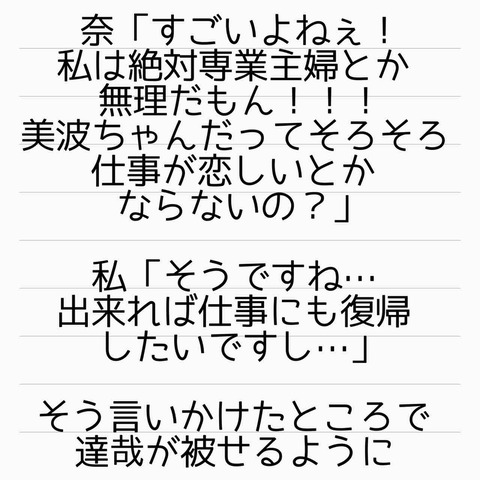 奈「すごいよねぇ！
私は絶対専業主婦とか
無理だもん！！！
美波ちゃんだってそろそろ
仕事が恋しいとか
ならないの？」
私「そうですね…
出来れば仕事にも復帰
したいですし…」
そう言いかけたところで
達哉が被せるように